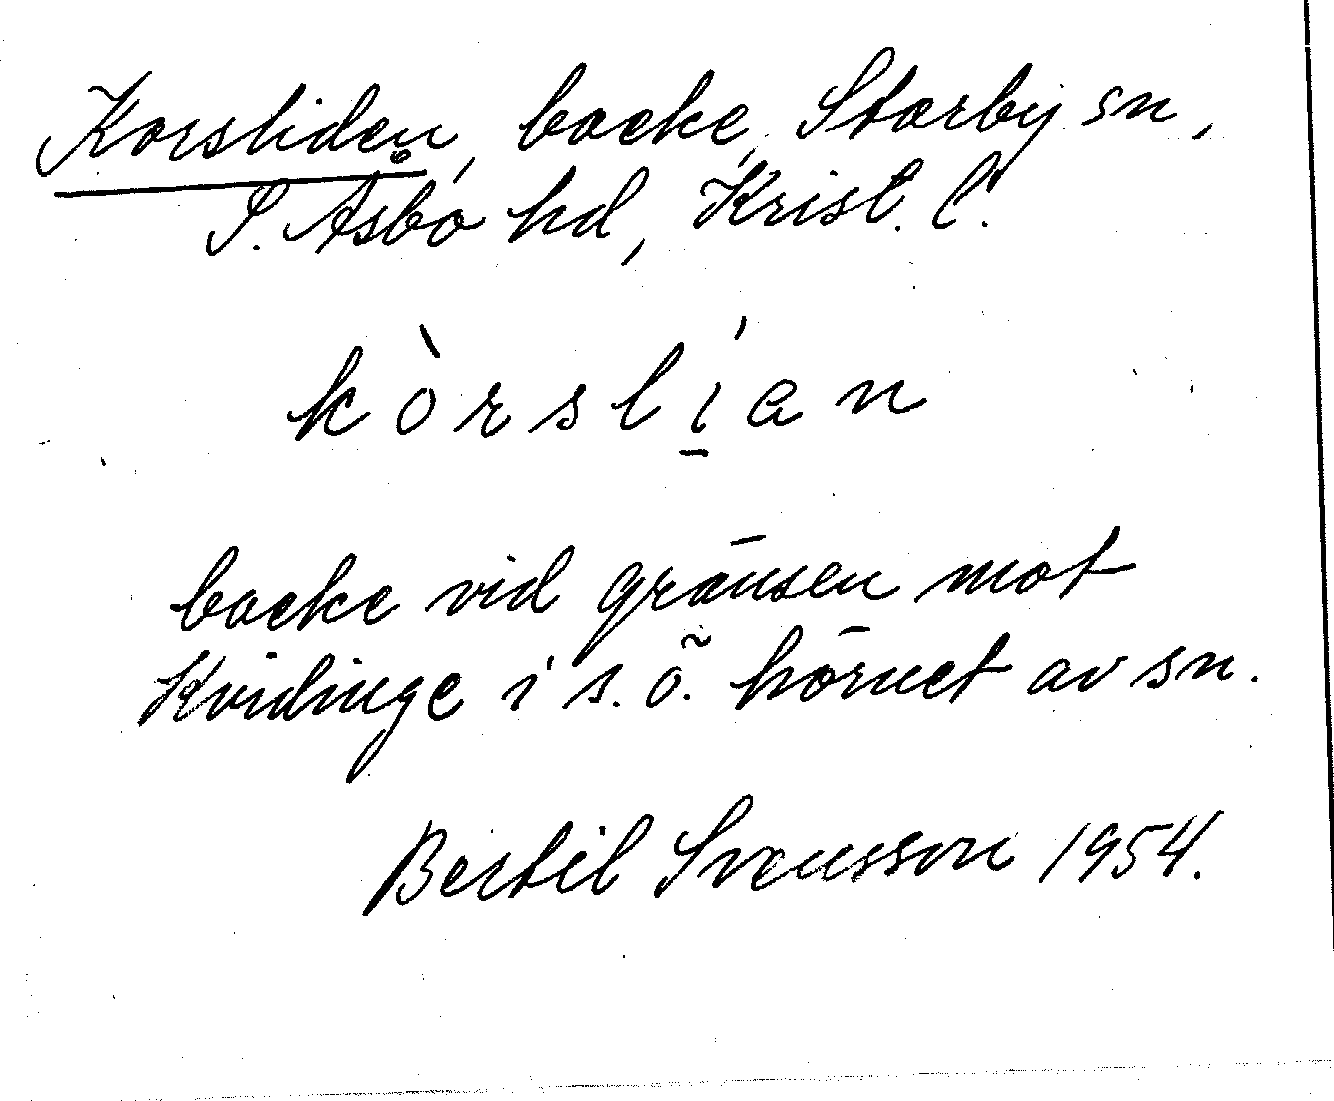 Korsliden, backe, Starby sn,
S. Åsbo hd, Krist. l.
kòrslían
backe vid gränsen mot
Kvidinge i s.ö. hörnet av sn.
Bertil Svensson 1954.